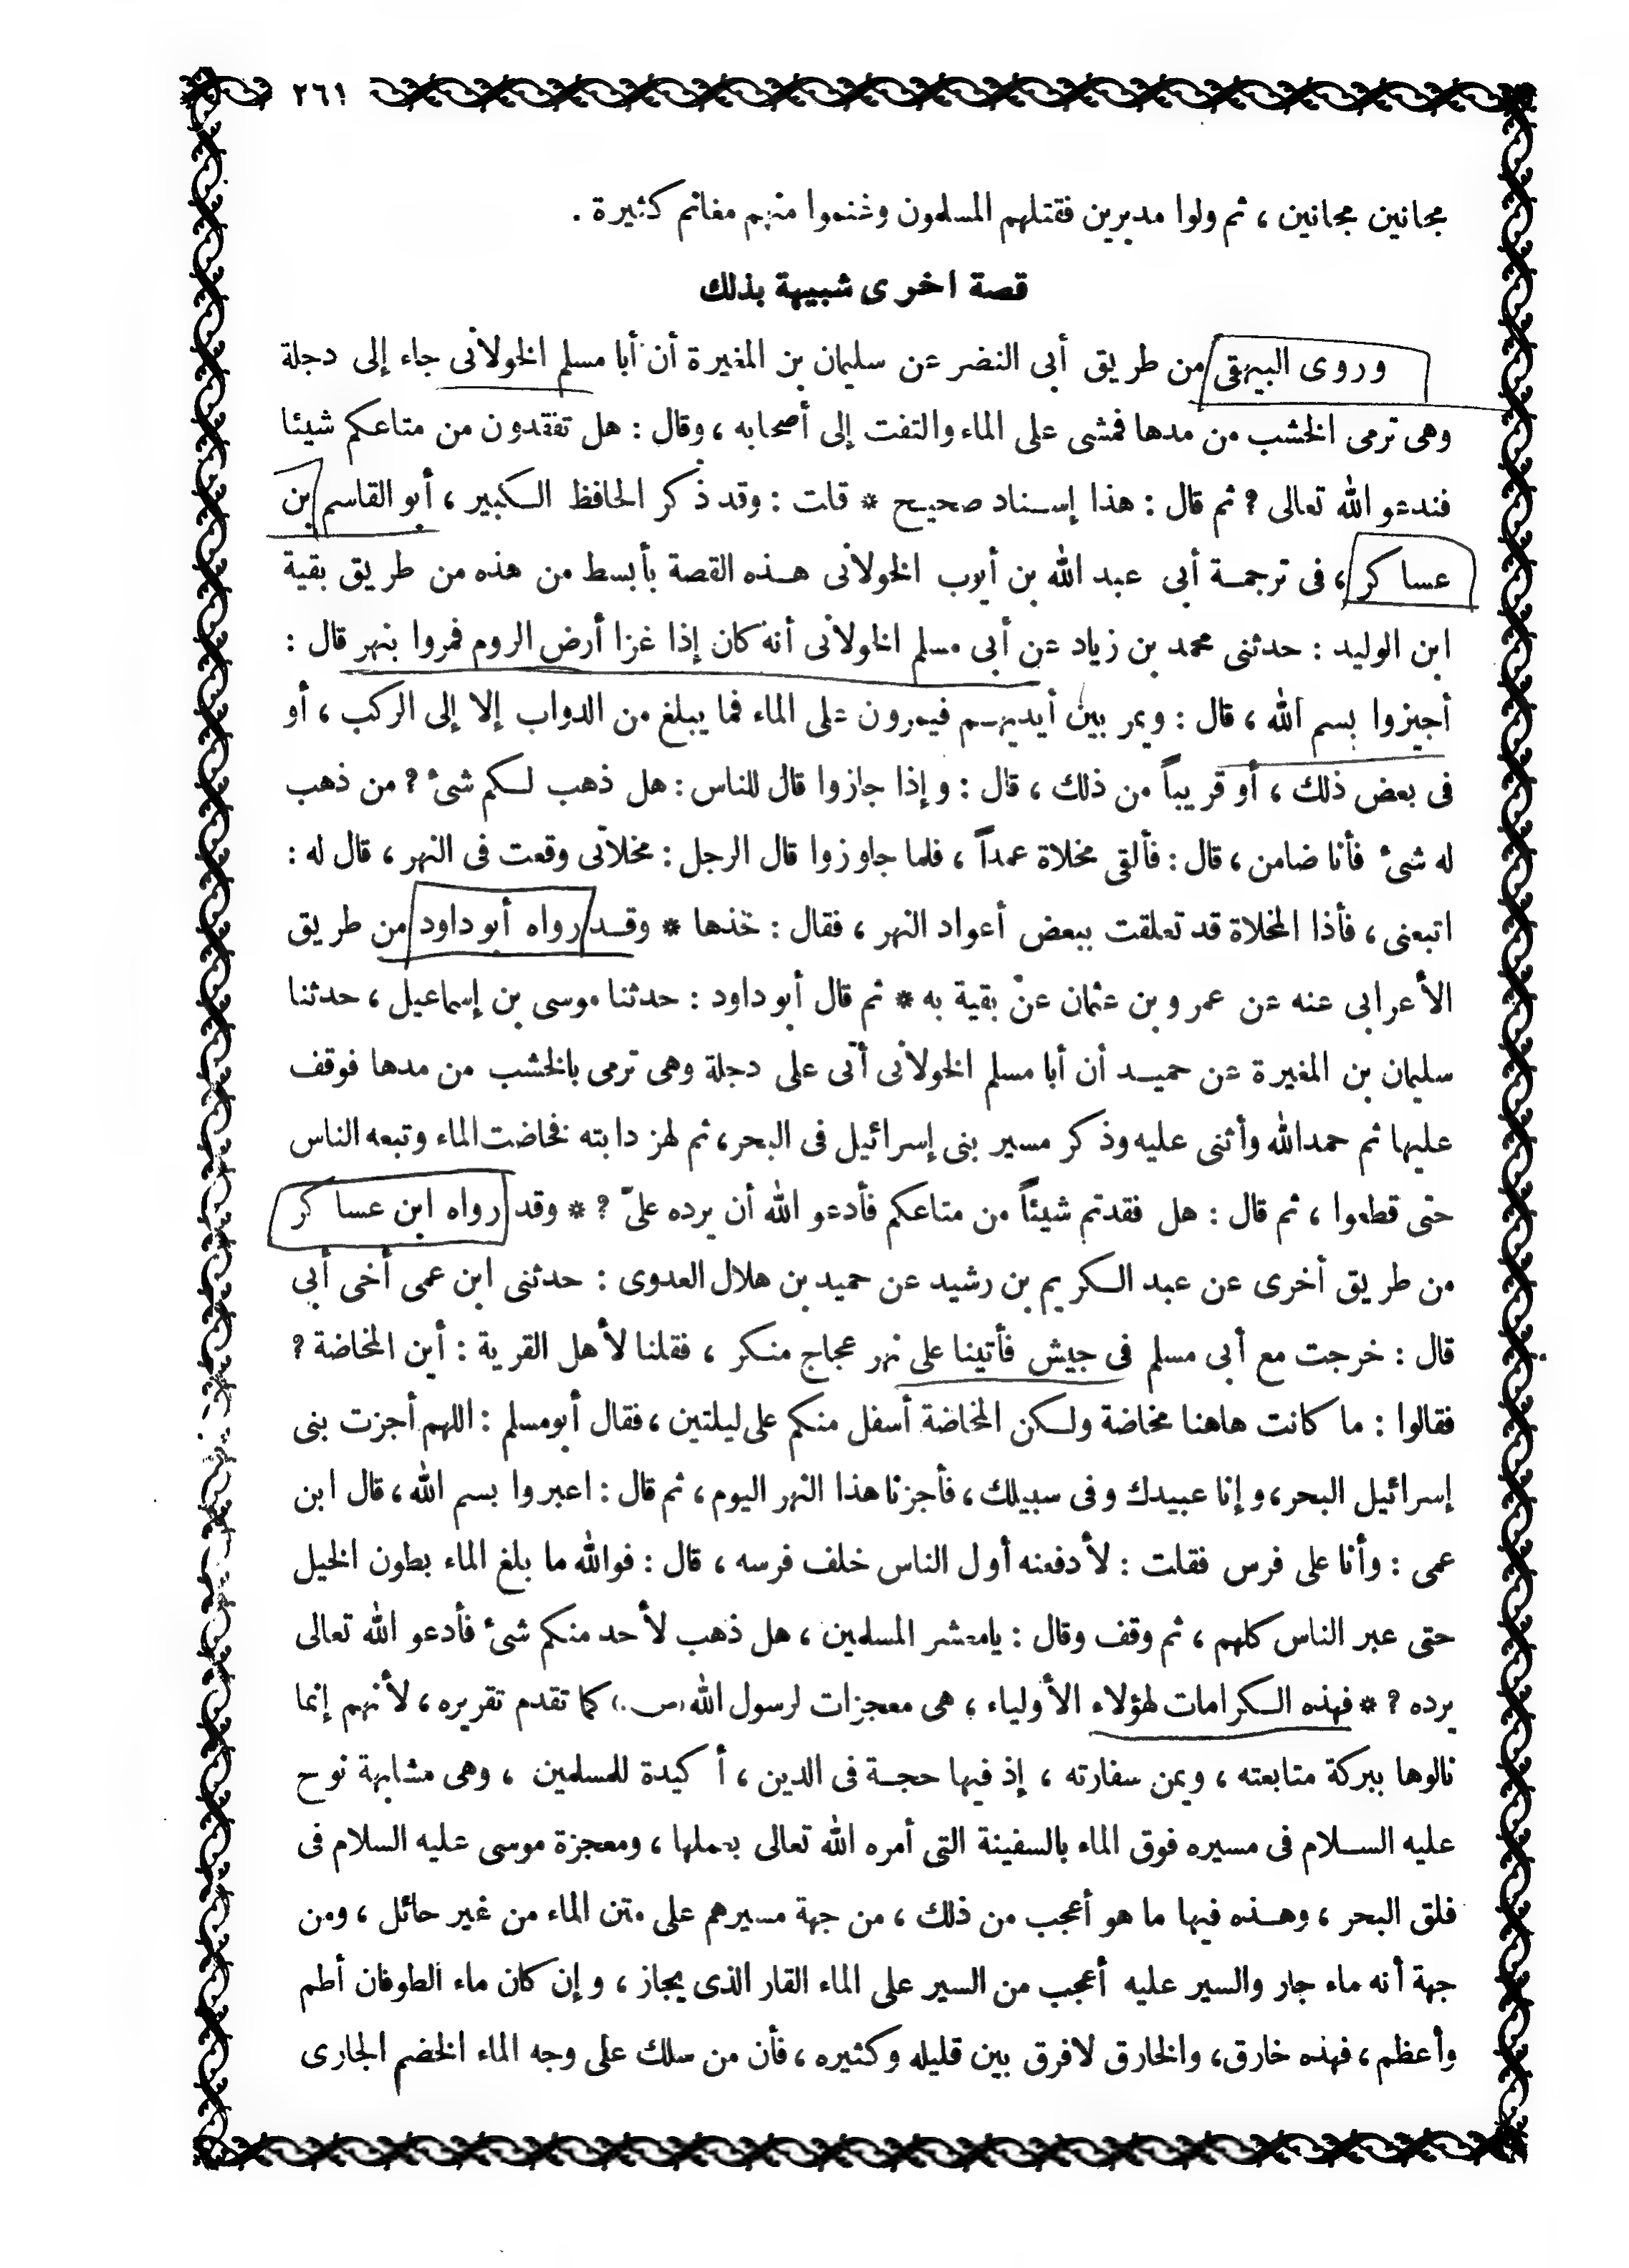 ٢٦١
مجانين مجانين ، ثم ولوا مدبرين فقتلهم المسلمون وغنموا منهم مغانم كثيرة .
قصة اخرى شبيهة بذلك
وروى البيهقى من طريق أبى النضر عن سليمان بن المغيرة أن أبا مسلم الخولانى جاء إلى دجلة
وهى ترمى الخشب من مدها فمشى على الماء والتفت إلى أصحابه ، وقال : هل تفقدون من متاعكم شيئا
فندعو الله تعالى ? ثم قال : هذا إسناد صحيح * قلت : وقد ذكر الحافظ الكبير ، أبو القاسم بن
عساكر ، فى ترجمة أبى عبد الله بن أيوب الخولانى هذه القصة بأبسط من هذه من طريق بقية
ابن الوليد : حدثنى محمد بن زياد عن أبى مسلم الخولانى أنه كان إذا غزا أرض الروم فمروا بنهر قال :
أجيزوا بسم الله ، قال : ويمر بين أيديهم فيمرون على الماء فما يبلغ من الدواب إلا إلى الركب ، أو
فى بعض ذلك ، أو قريباً من ذلك ، قال : وإذا جازوا قال للناس : هل ذهب لكم شئ ? من ذهب
له شئ فأنا ضامن ، قال : فألقى مخلاة عمداً ، فلما جاوزوا قال الرجل : مخلاتى وقعت فى النهر ، قال له :
اتبعنى ، فأذا المخلاة قد تعلقت ببعض أعواد النهر ، فقال : خذها * وقد رواه أبو داود من طريق
الأعرابى عنه عن عمرو بن عثمان عن بقية به * ثم قال أبو داود : حدثنا موسى بن إسماعيل ، حدثنا
سليمان بن المغيرة عن حميد أن أبا مسلم الخولانى أتى على دجلة وهى ترمى بالخشب من مدها فوقف
عليها ثم حمد الله وأثنى عليه وذكر مسير بنى إسرائيل فى البحر ، ثم لهز دابته فخاضت الماء وتبعه الناس
حتى قطعوا ، ثم قال : هل فقدتم شيئاً من متاعكم فأدعو الله أن يرده علىّ ? * وقد رواه ابن عساكر
من طريق أخرى عن عبد الكريم بن رشيد عن حميد بن هلال العدوى : حدثنى ابن عمى أخى أبى
قال : خرجت مع أبى مسلم فى جيش فأتينا على نهر عجاج منكر ، فقلنا لأهل القرية : أين المخاضة ?
فقالوا : ما كانت هاهنا مخاضة ولكن المخاضة أسفل منكم على ليلتين ، فقال أبو مسلم : اللهم أجزت بنى
إسرائيل البحر ، وإنا عبيدك وفى سبيلك ، فأجزنا هذا النهر اليوم ، ثم قال : اعبروا بسم الله ، قال ابن
عمى : وأنا على فرس فقلت : لأدفعنه أول الناس خلف فرسه ، قال : فوالله ما بلغ الماء بطون الخيل
حتى عبر الناس كلهم ، ثم وقف وقال : يامعشر المسلمين ، هل ذهب لأحد منكم شئ فأدعو الله تعالى
يرده ? * فهذه الكرامات لهؤلاء الأولياء ، هى معجزات لرسول الله (ص.) كما تقدم تقريره ، لأنهم إنما
نالوها ببركة متابعته ، ويمن سفارته ، إذ فيها حجة فى الدين ، أكيدة للمسلمين ، وهى مشابهة نوح
عليه السلام فى مسيره فوق الماء بالسفينة التى أمره الله تعالى بعملها ، ومعجزة موسى عليه السلام فى
فلق البحر ، وهذه فيها ما هو أعجب من ذلك ، من جهة مسيرهم على متن الماء من غير حائل ، ومن
جهة أنه ماء جار والسير عليه أعجب من السير على الماء القار الذى يجاز ، وإن كان ماء الطوفان أطم
وأعظم ، فهذه خارق ، والخارق لافرق بين قليله وكثيره ، فأن من سلك على وجه الماء الخضم الجارى